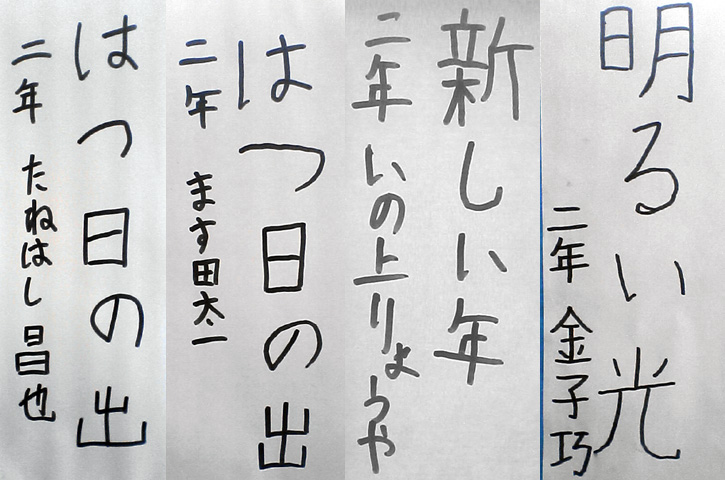 明るい光
二年 金子巧
新しい年
二年 いの上りょうや
はつ日の出
二年 ます田太一
はつ日の出
二年 たねはし昌也